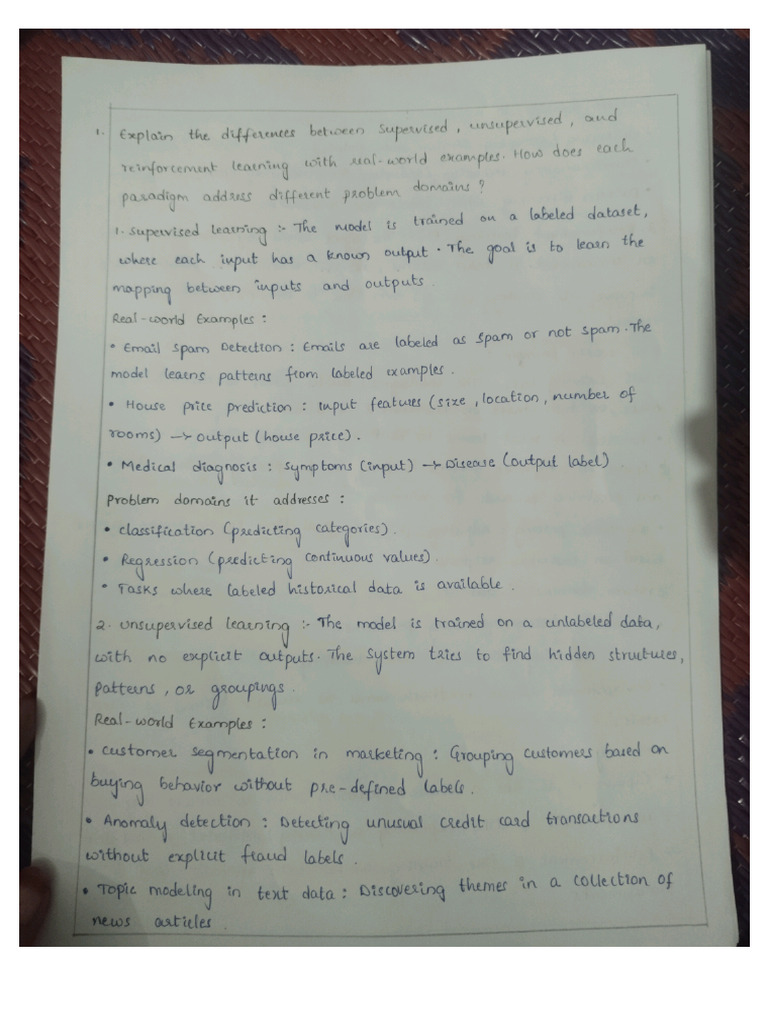 1. Explain the differences between supervised, unsupervised, and
reinforcement learning with real-world examples. How does each
paradigm address different problem domains?
1. Supervised learning :- The model is trained on a labeled dataset,
where each input has a known output. The goal is to learn the
mapping between inputs and outputs.
Real-world Examples :
• Email Spam Detection : Emails are labeled as spam or not spam. The
model learns patterns from labeled examples.
• House price prediction : input features (size, location, number of
rooms) → output (house price).
• Medical diagnosis : symptoms (input) → Disease (output label)
Problem domains it addresses :
• classification (predicting categories).
• Regression (predicting continuous values).
• Tasks where labeled historical data is available.
2. unsupervised learning :- The model is trained on a unlabeled data,
with no explicit outputs. The system tries to find hidden structures,
patterns, or groupings.
Real-world Examples :
• customer segmentation in marketing : Grouping customers based on
buying behavior without pre-defined labels.
• Anomaly detection : Detecting unusual credit card transactions
without explicit fraud labels.
• Topic modeling in text data : Discovering themes in a collection of
news articles.